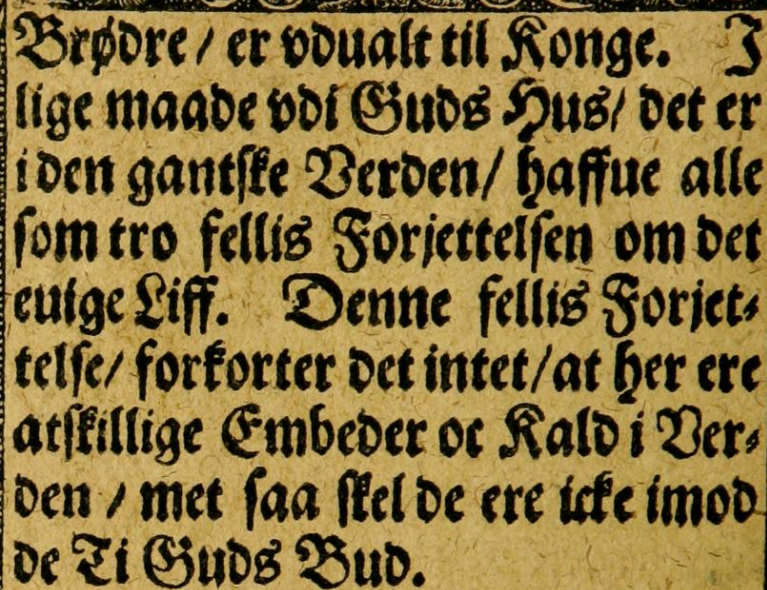 Brødre / er vdualt til Konge. J
lige maade vdi Guds Hus / det er
i den gantſke Verden / haffue alle
ſom tro fellis Forjettelſen om det
euige Liff. Denne fellis Forjet⸗
telſe / forkorter det intet / at her ere
atſkillige Embeder oc Kald i Ver⸗
den / met ſaa ſkel de ere icke imod
de Ti Guds Bud.